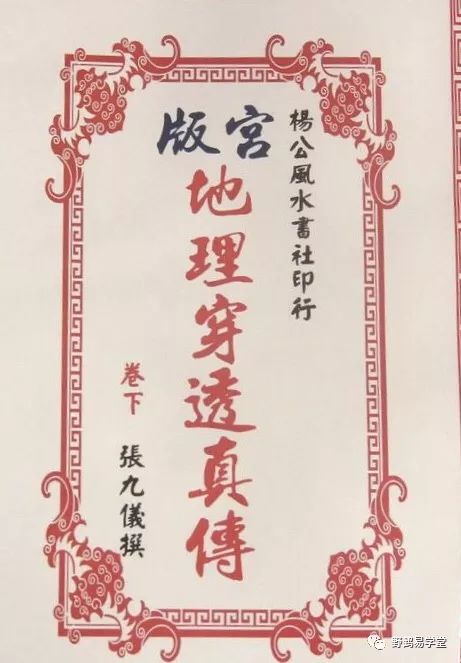 楊公風水書社印行
宮版
地理穿透真傳
卷下
張九儀撰
野鹤易学堂